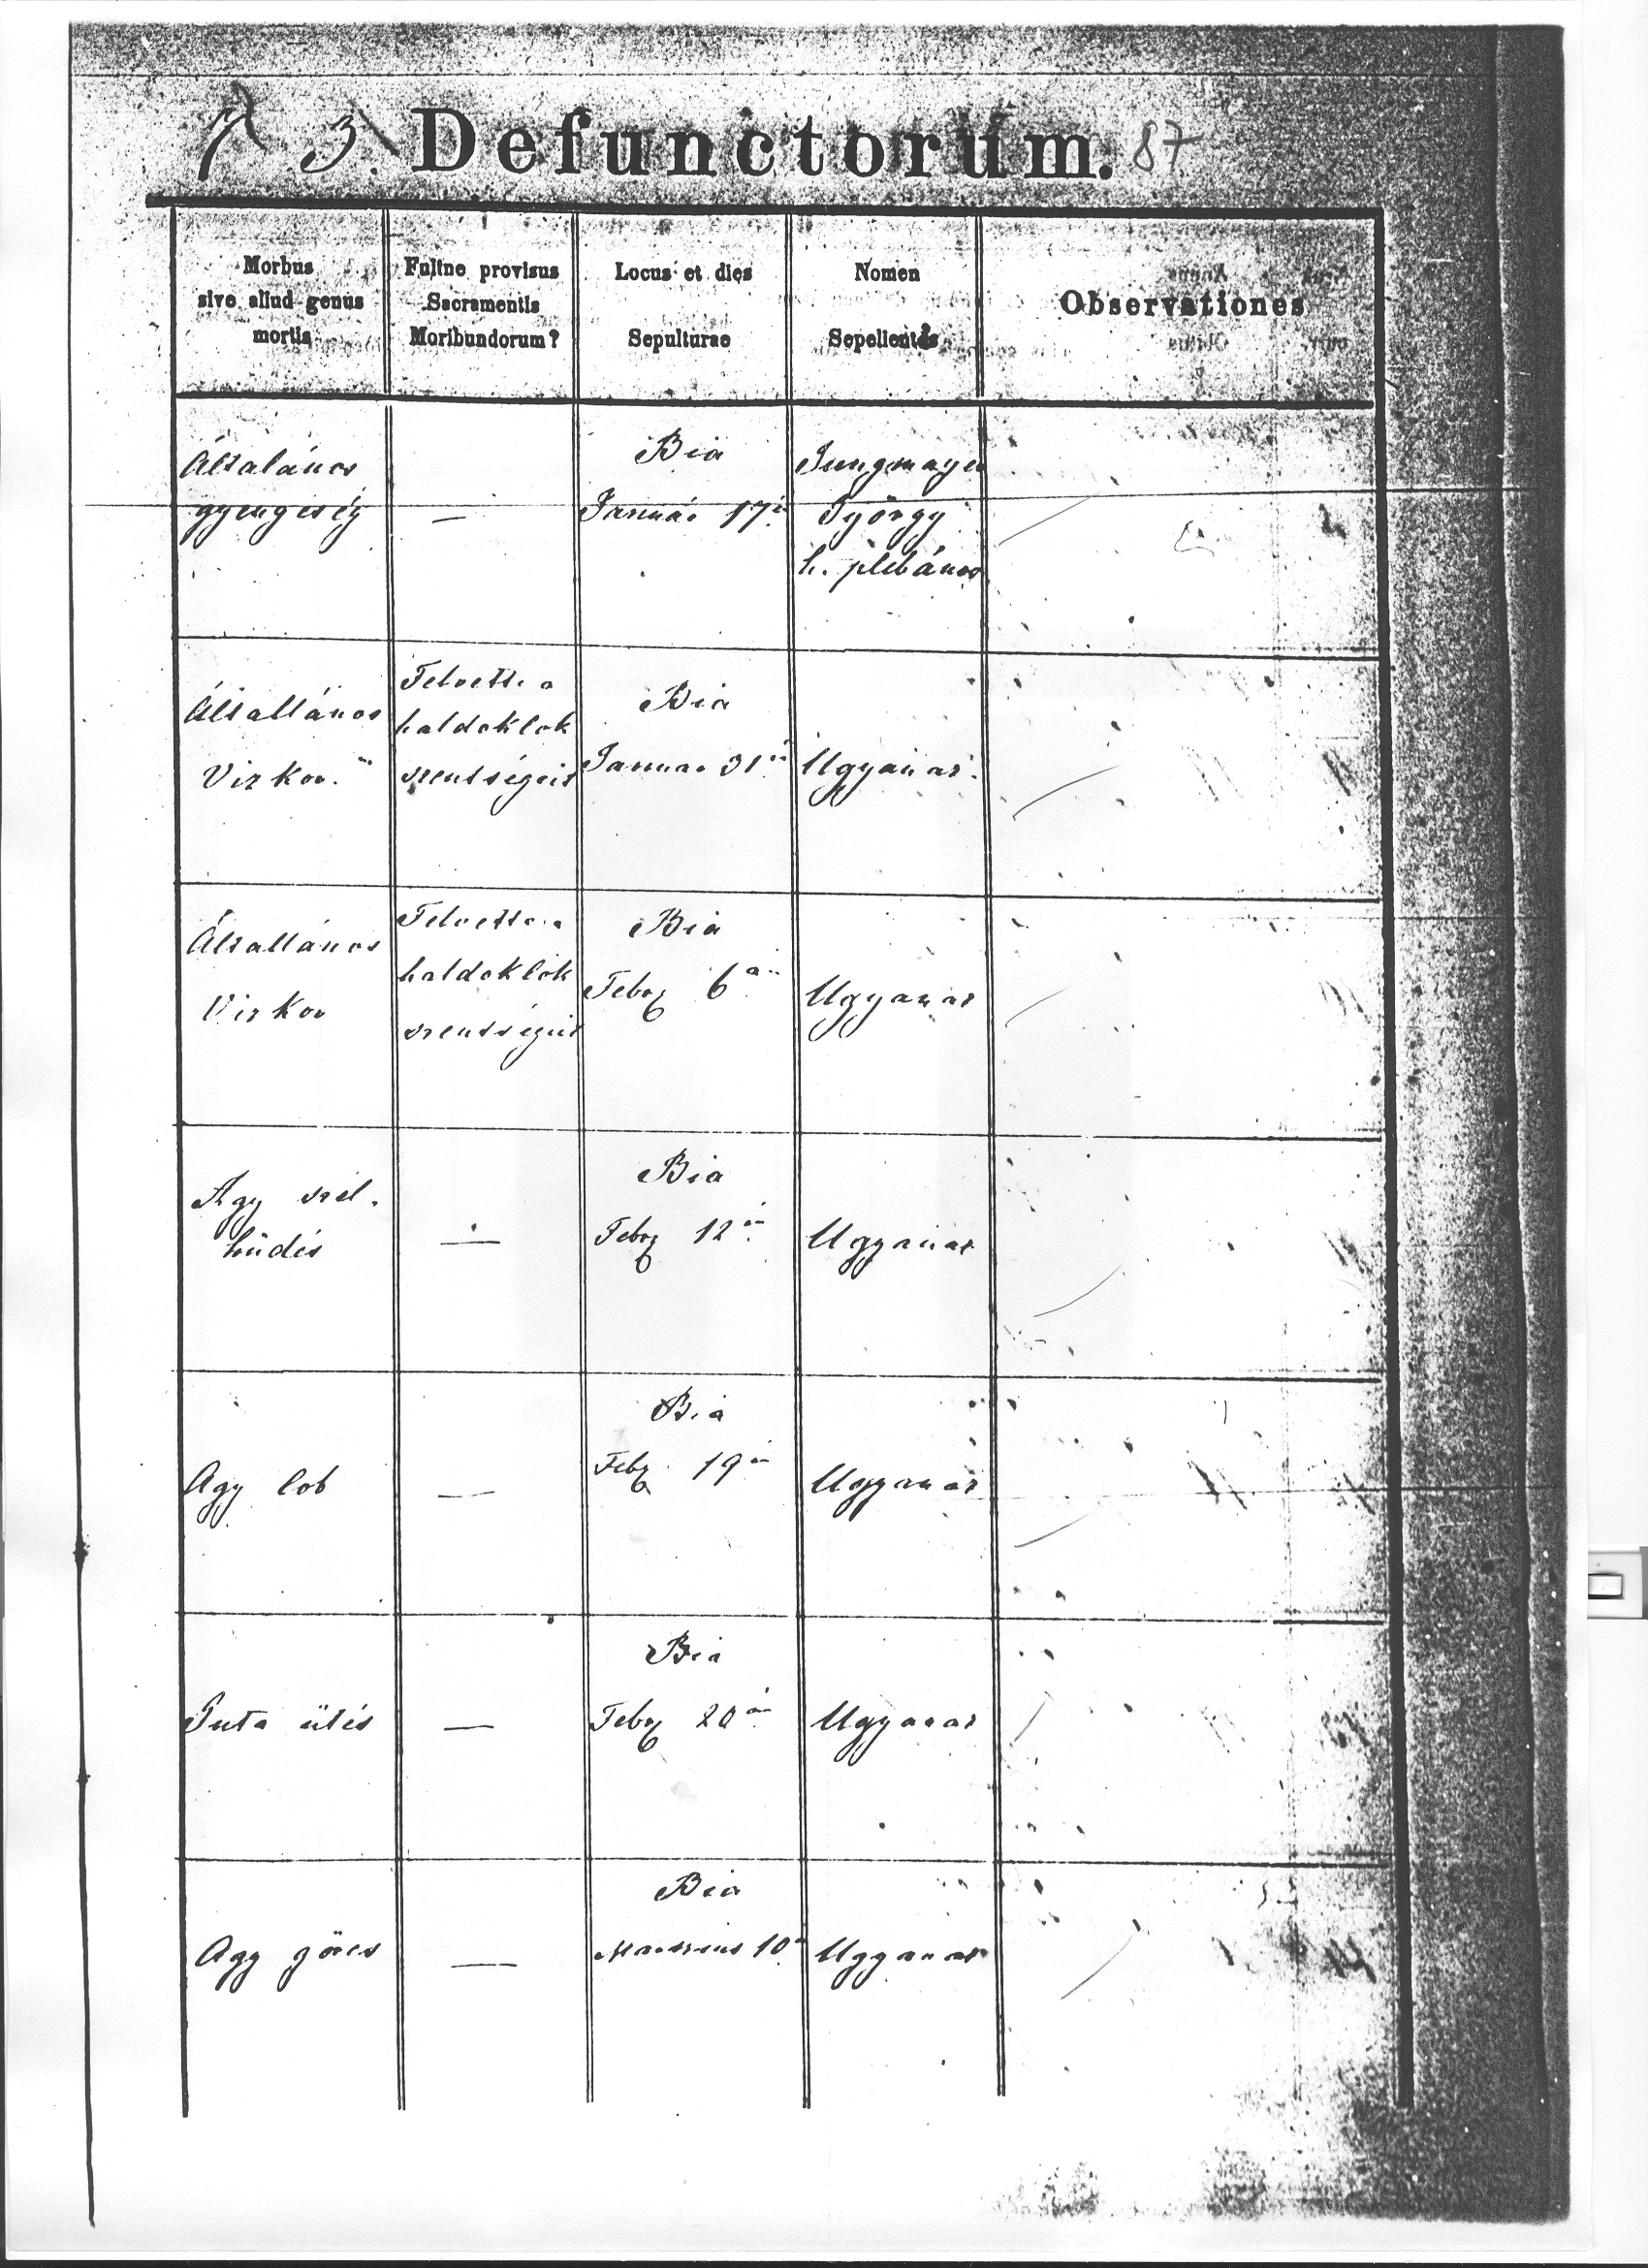 3. Defunctorum. 87
Morbus
sive aliud genus
mortis
Fuitne provisus
Sacramentis
Moribundorum?
Locus et dies
Sepulturae
Nomen
Sepelientis
Observationes
Általános
gyengeség
—
Bia
Január 17én
Jungmayer
György
h. plébános
Általlános
Vizkor.
Felvette a
haldoklok
szentségeit
Bia
Januar 31én
Ugyanaz.
Általlános
Vizkor
Felvette a
haldoklók
szentségeit
Bia
Febr 6án
Ugyanaz
Agy szél-
hüdés
—
Bia
Febr 12én
Ugyanaz
Agy lob
—
Bia
Febr 19én
Ugyanaz
Guta ütés
—
Bia
Febr 20án
Ugyanaz
Agy görcs
—
Bia
Marczius 10én
Ugyanaz